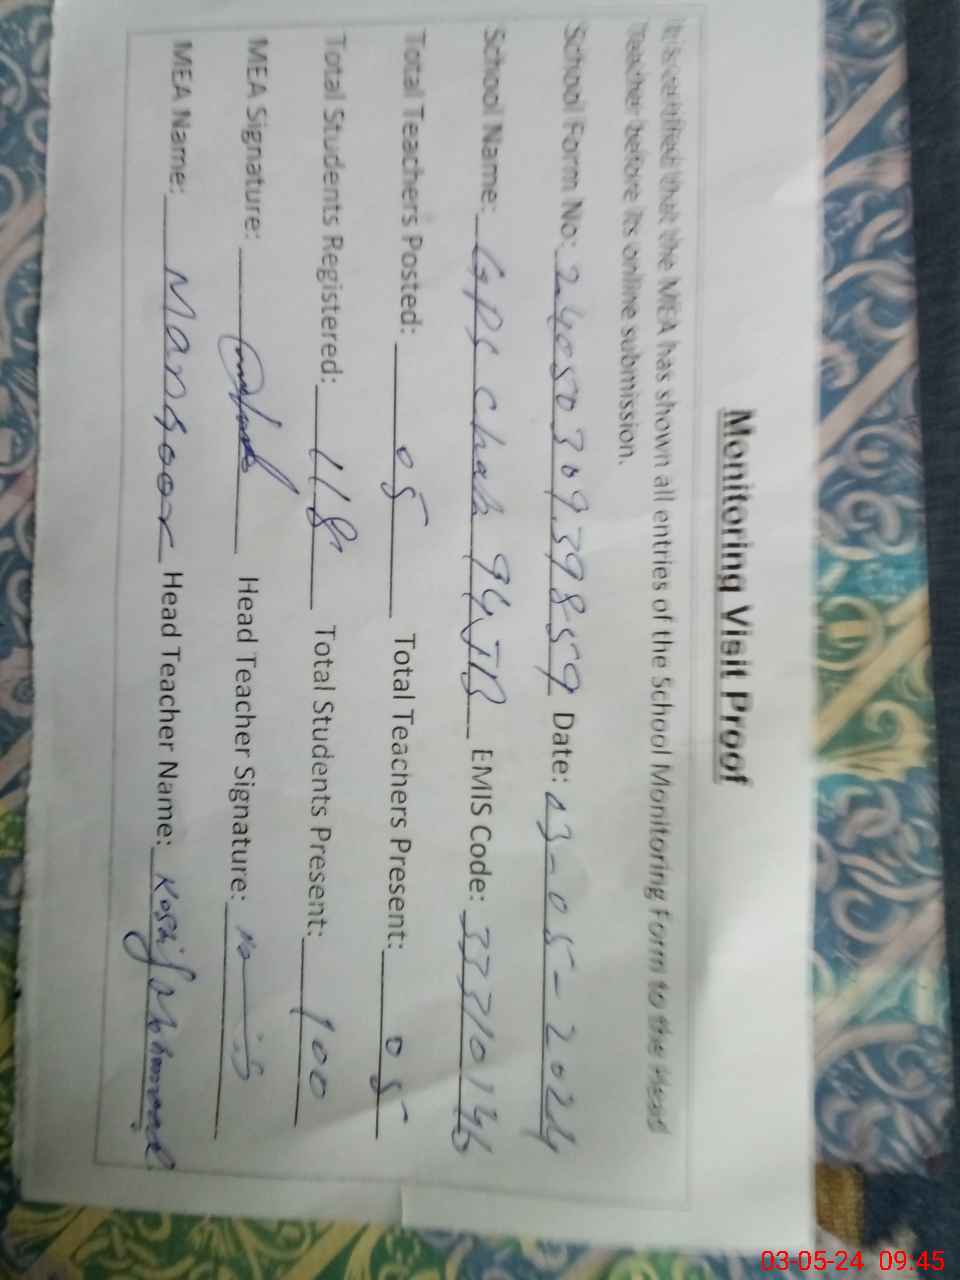 Monitoring Visit Proof
It is certified that the MEA has shown all entries of the School Monitoring Form to the Head
Teacher before its online submission.
School Form No: 2405030939859 Date: 03-05-2024
School Name: GPS Chak 94 JB EMIS Code: 33310146
Total Teachers Posted: 05 Total Teachers Present: 05
Total Students Registered: 118 Total Students Present: 100
MEA Signature: Head Teacher Signature:
MEA Name: Mansoor Head Teacher Name: Kashif
03-05-24 09:45